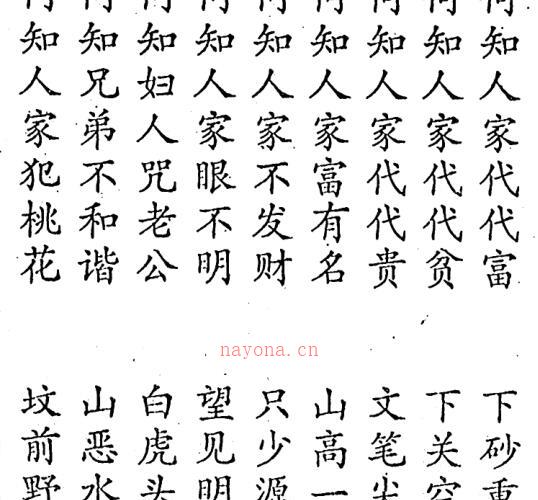 何知人家代代富
何知人家代代贫
何知人家代代贵
何知人家富有名
何知人家不发财
何知人家眼不明
何知妇人咒老公
何知兄弟不和谐
何知人家犯桃花
nayona.cn
下砂重
下关
文笔尖
山高一
只少源
望见明
白虎头
山恶水
坟前野